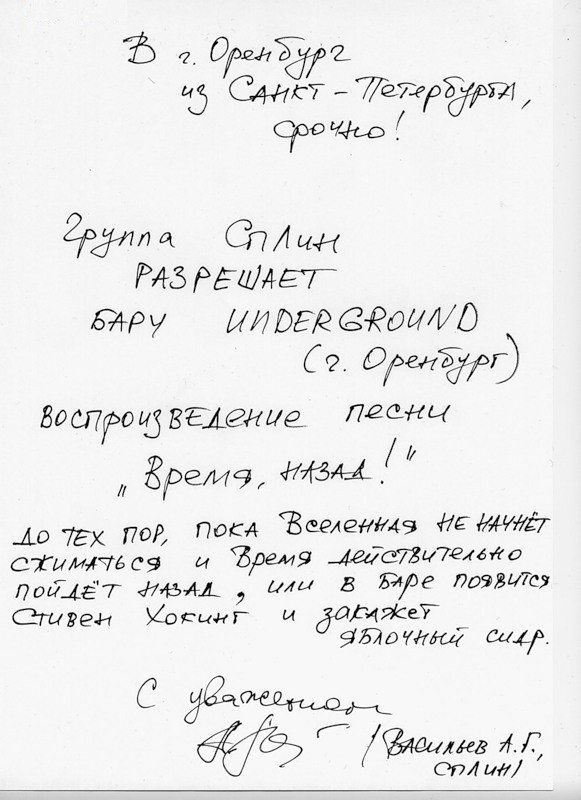 В г. Оренбург
из Санкт-Петербурга,
срочно!
Группа Сплин
РАЗРЕШАЕТ
БАРУ UNDERGROUND
(г. Оренбург)
ВОСПРОИЗВЕДЕНИЕ ПЕСНИ
„Время, НАЗАД!"
ДО ТЕХ ПОР, ПОКА ВСЕЛЕННАЯ НЕ НАЧНЁТ
СЖИМАТЬСЯ И ВРЕМЯ ДЕЙСТВИТЕЛЬНО
ПОЙДЁТ НАЗАД, ИЛИ В БАРЕ ПОЯВИТСЯ
СТИВЕН ХОКИНГ И ЗАКАЖЕТ
ЯБЛОЧНЫЙ СИДР.
С уважением
/ВАСИЛЬЕВ А.Г.,
СПЛИН/